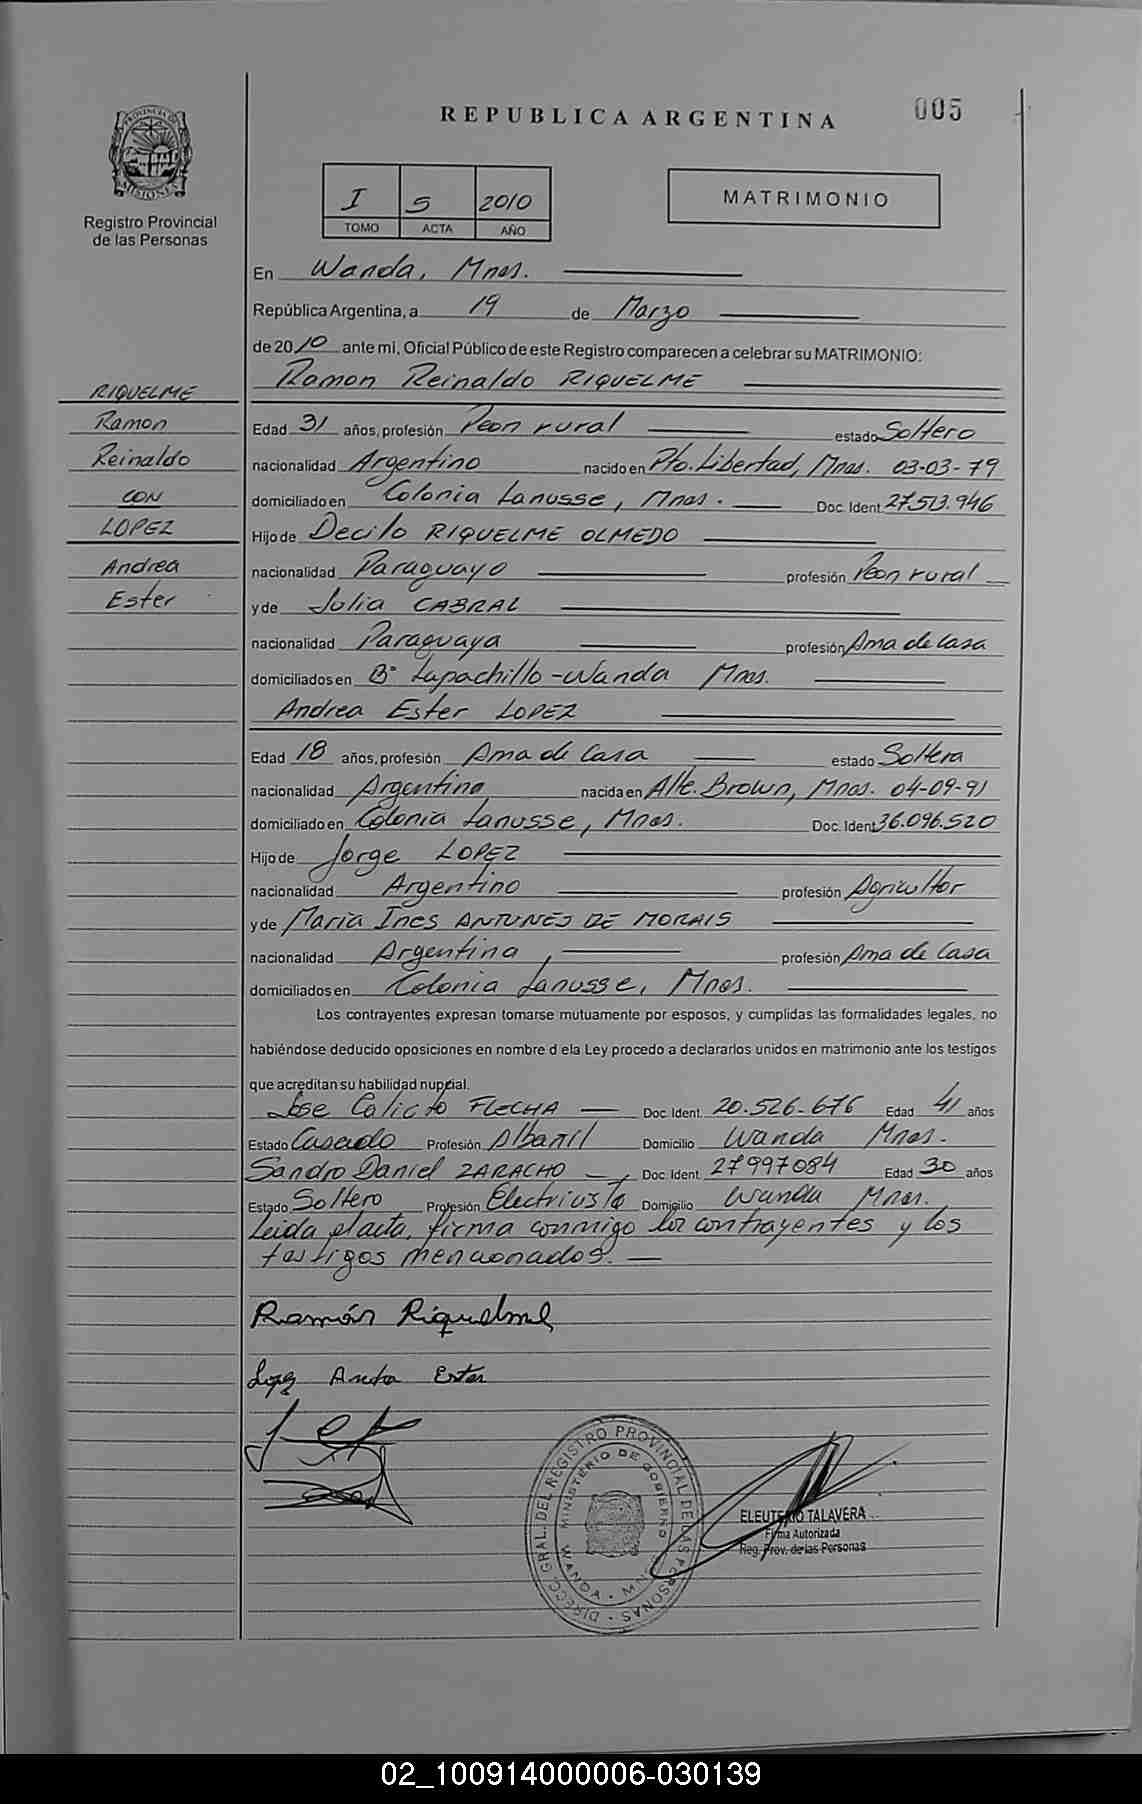 REPUBLICA ARGENTINA
005
PROVINCIA DE MISIONES
Registro Provincial
de las Personas
I 5 2010
TOMO ACTA AÑO
MATRIMONIO
En Wanda, Mnes.
República Argentina, a 19 de Marzo
de 2010 ante mi, Oficial Público de este Registro comparecen a celebrar su MATRIMONIO:
Ramon Reinaldo RIQUELME
RIQUELME
Ramon
Reinaldo
CON
LOPEZ
Andrea
Ester
Edad 31 años, profesión Peon rural estado Soltero
nacionalidad Argentino nacido en Pto. Libertad, Mnes. 03-03-79
domiciliado en Colonia Lanusse, Mnes. Doc. Ident 27.513.946
Hijo de Decilo RIQUELME OLMEDO
nacionalidad Paraguayo profesión Peon rural
y de Julia CABRAL
nacionalidad Paraguaya profesión Ama de Casa
domiciliados en B° Lapachillo-Wanda Mnes.
Andrea Ester LOPEZ
Edad 18 años, profesión Ama de Casa estado Soltera
nacionalidad Argentina nacida en Alte. Brown, Mnes. 04-09-91
domiciliado en Colonia Lanusse, Mnes. Doc. Ident 36.096.520
Hijo de Jorge LOPEZ
nacionalidad Argentino profesión Agricultor
y de Maria Ines ANTUNES DE MORAIS
nacionalidad Argentina, profesión Ama de Casa
domiciliados en Colonia Lanusse, Mnes.
Los contrayentes expresan tomarse mutuamente por esposos, y cumplidas las formalidades legales, no
habiéndose deducido oposiciones en nombre d ela Ley procedo a declararlos unidos en matrimonio ante los testigos
que acreditan su habilidad nupcial.
Jose Calicto FLECHA Doc. Ident. 20.526.676 Edad 41 años
Estado Casado Profesión Albañil Domicilio Wanda Mnes.
Sandro Daniel ZARACHO Doc. Ident. 27997084 Edad 30 años
Estado Soltero Profesión Electricista Domicilio Wanda Mnes.
Leida el acta, firma conmigo los contrayentes y los
testigos mencionados.
Ramón Riquelme
Lopez Andrea Ester
DIRECC. GRAL. DEL REGISTRO PROVINCIAL DE LAS PERSONAS
MINISTERIO DE GOBIERNO
WANDA - MNES
ELEUTERIO TALAVERA
Firma Autorizada
Reg. Prov. de las Personas
02_100914000006-030139